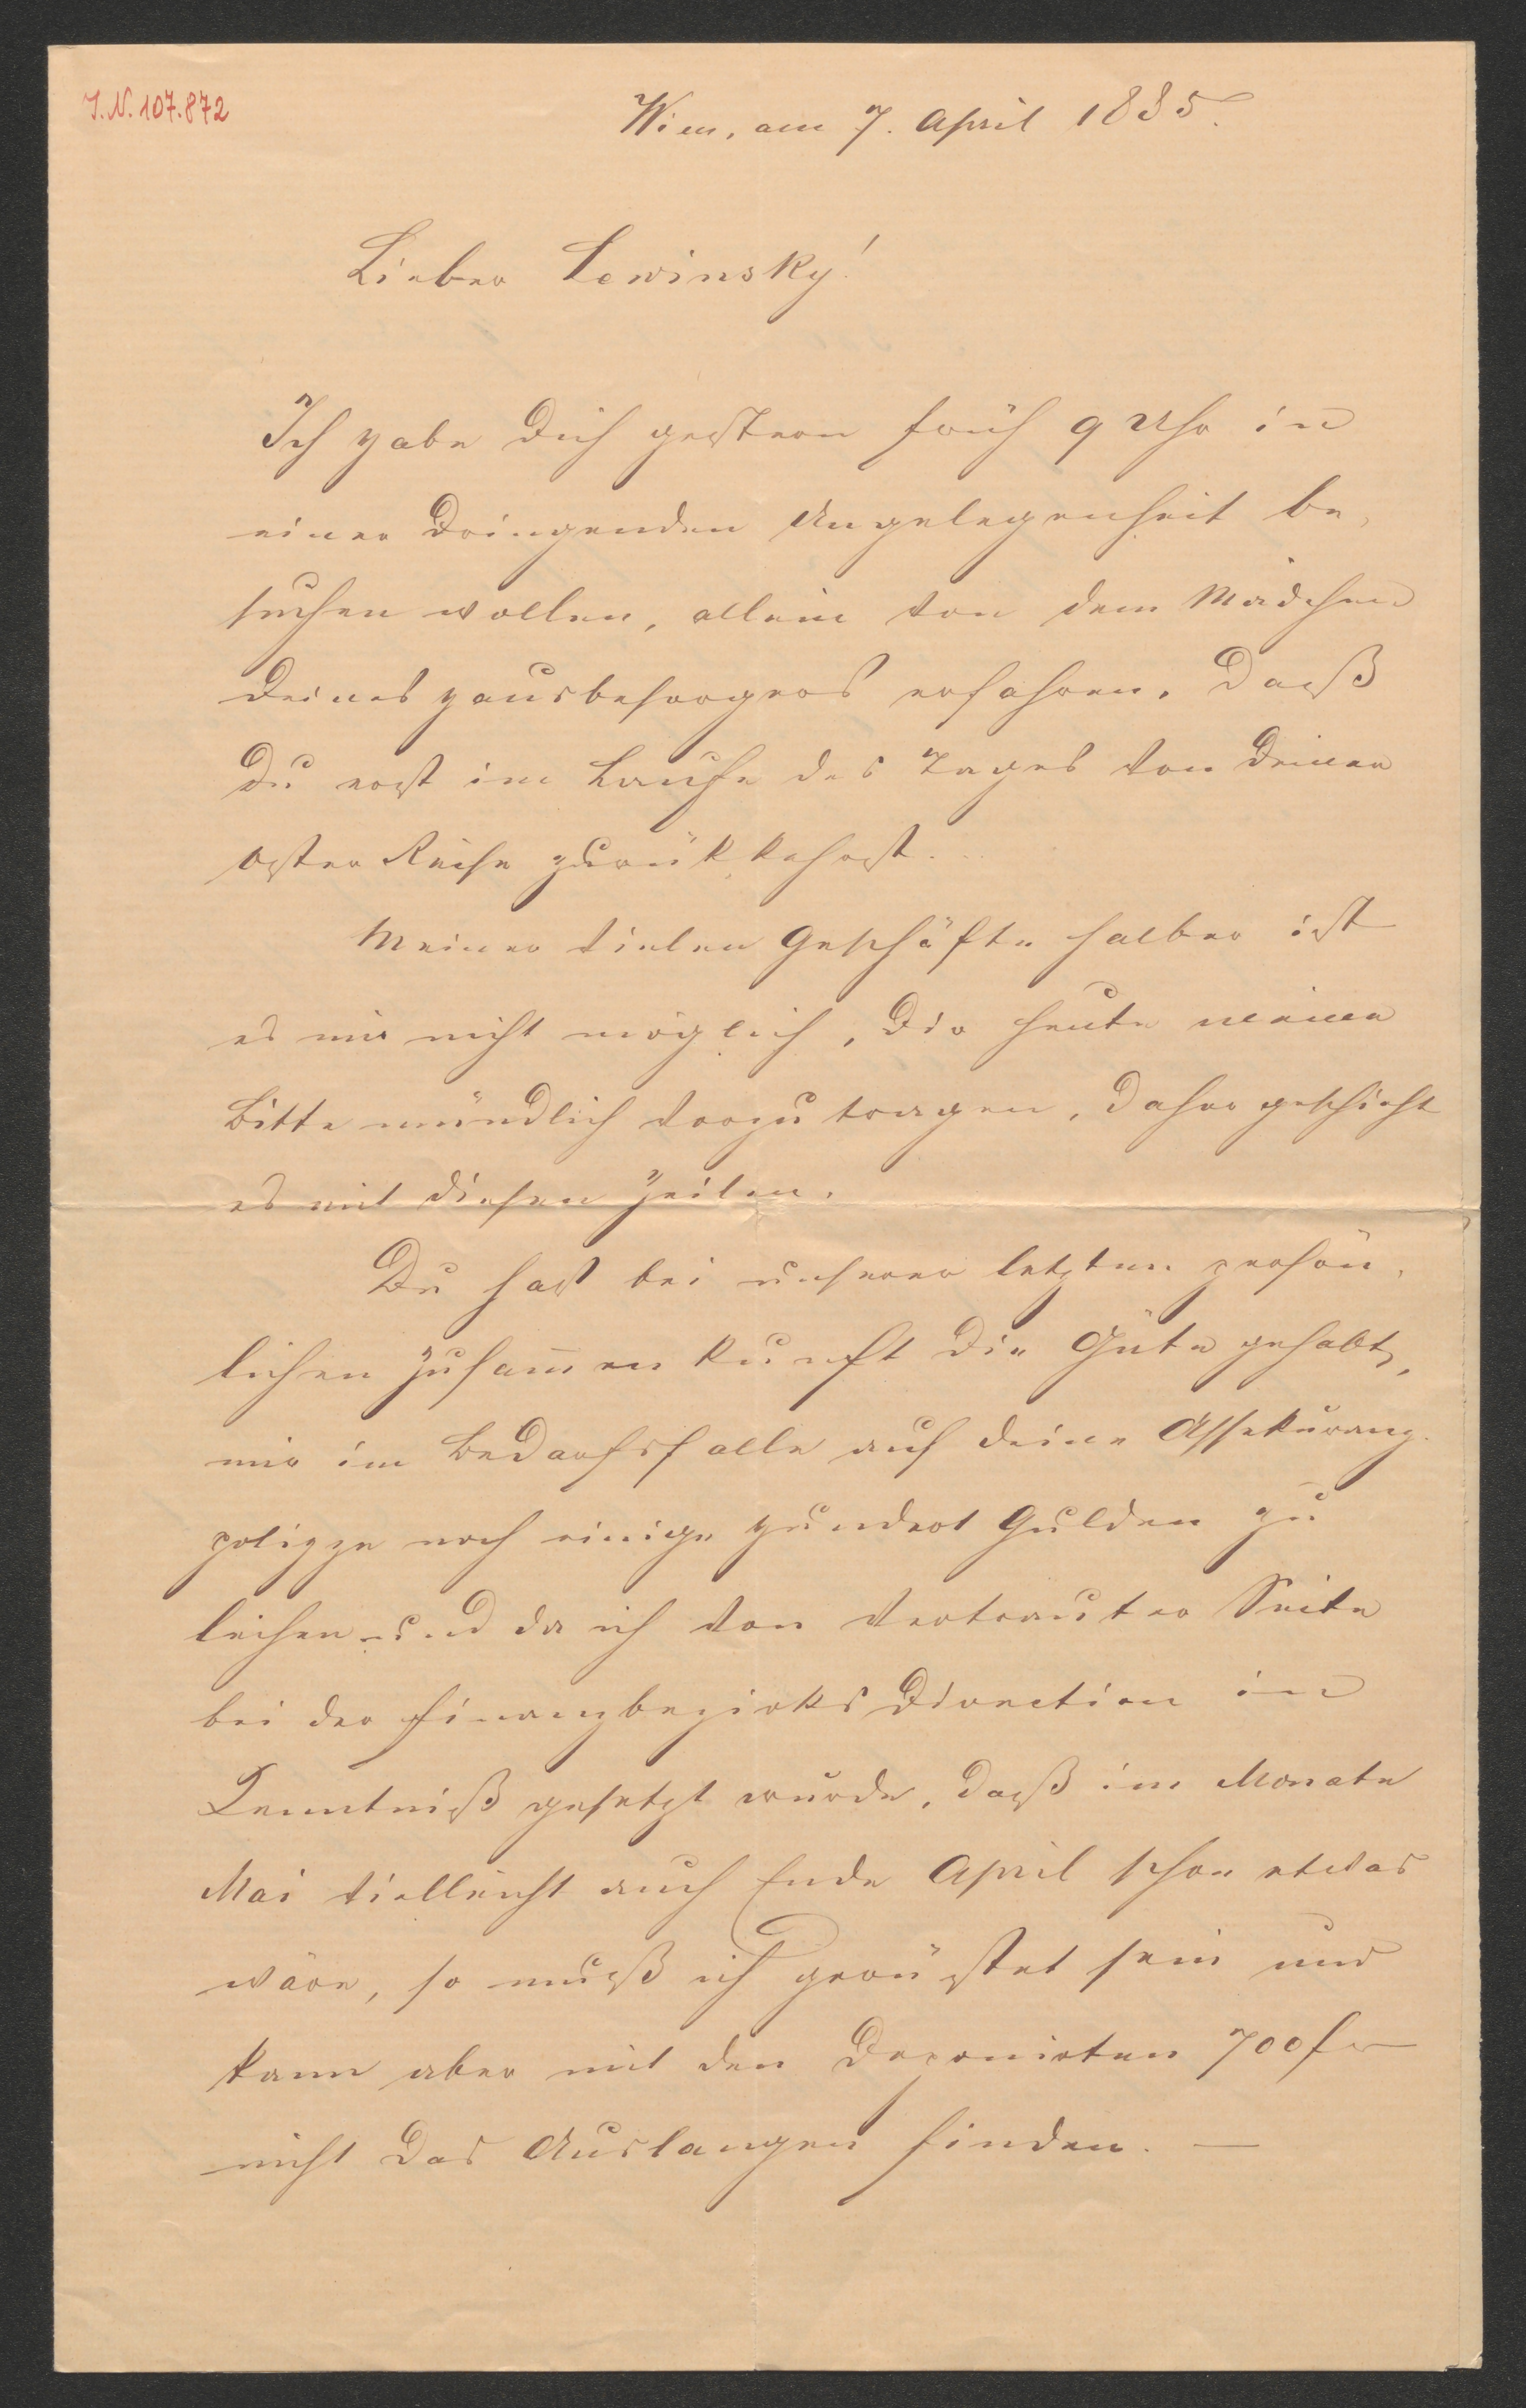 J.N. 107.872
Wien, am 7. April 1885.
Lieber Lewinsky!
Ich habe Dich gestern früh 9 Uhr in
einer dringenden Angelegenheit be-
suchen wollen, allein von dem Mädchen
Deines Hausbesorgers erfahren, daß
Du erst im Laufe des Tages von Deiner
Oster Reise zurückkehrst.
Meiner vielen Geschäfte halber ist
es mir nicht möglich, Dir heute meine
Bitte mündlich vorzutragen, daher geschieht
es mit diesen Zeilen.
Du hast bei unserer letzten persön-
lichen Zusammenkunft die Güte gehabt,
mir im Bedarfsfalle auf Deine Assekuranz-
polizze noch einige Hundert Gulden zu
leihen und da ich von vertrauter Seite
bei der Finanzbezirks Direction in
Kenntniß gesetzt wurde, daß im Monate
Mai vielleicht auch Ende April schon etwas
wäre, so muß ich gerüstet sein und
kann aber mit den deponirten 700 f
nicht das Auslangen finden. —